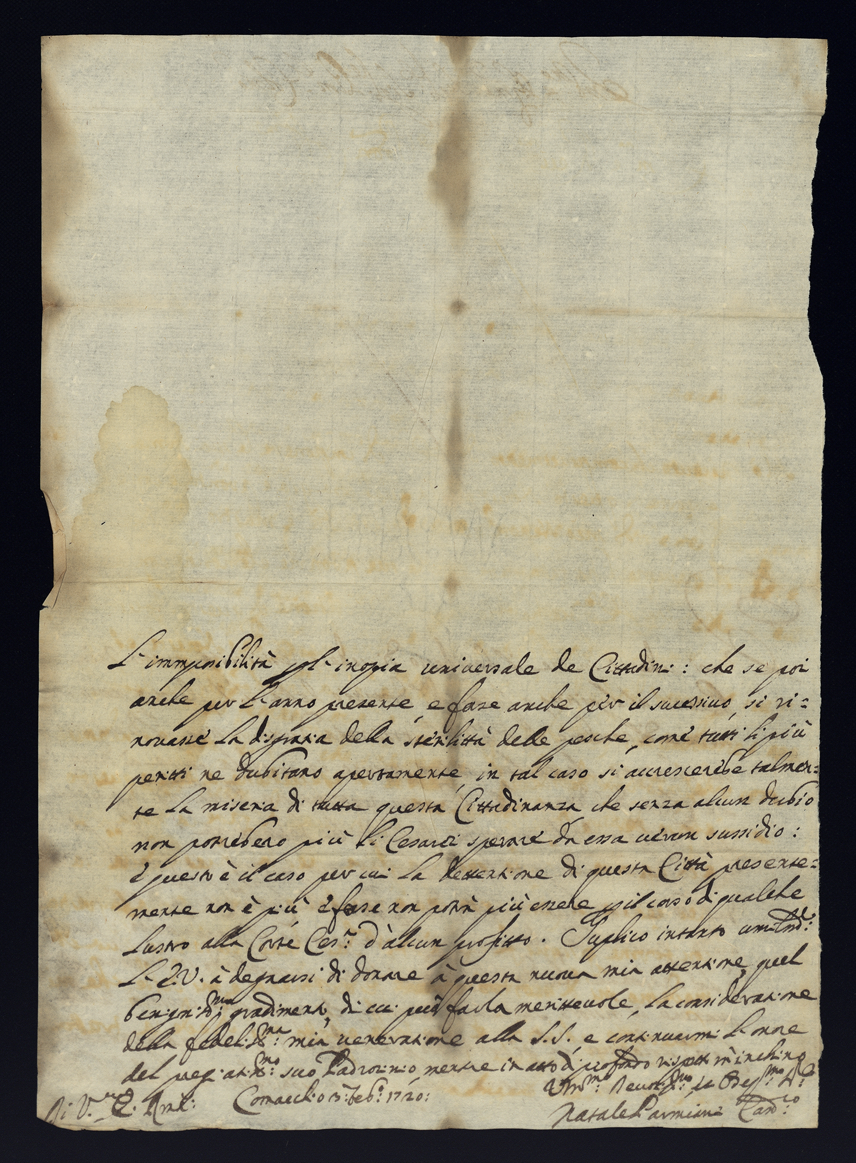 L'immposibilità p l'inopia universale de Cittadini: che se poi
anche per l'anno presente, e forse anche per il sucessivo, si ri=
novasse la disgratia della sterilittà delle pesche, come tutti li più
peritti ne dubitano apertamente, in tal caso si accrescerebe talmen=
te la miseria di tutta questa Cittadinanza che senza alcun dubio
non potrebero più li Cesarei sperare da essa verun sussidio:
E questo è il caso per cui la dettentione di questa Città presente=
mente non è più e forse non potrà più essere p il corso di qualche
lustro alla Corte Ces.ª d'alcun profitto. Suplico intanto
L'E.V. à degnarsi di donare à questa nuova mia attentione quel
benignis.mo gradimento, di cui può farla merittevole, la consideratione
della fedelis.ma mia veneratione alla S.S. e continuarmi l'onore
del pregiatis.mo suo Padrocinio mentre in atto di profondo rispetto m'inchino
Di V.ra E. Rma:     Comacchio 13 Feb.º 1720:     Umm.mo Devot.mo
Natale Parmiani